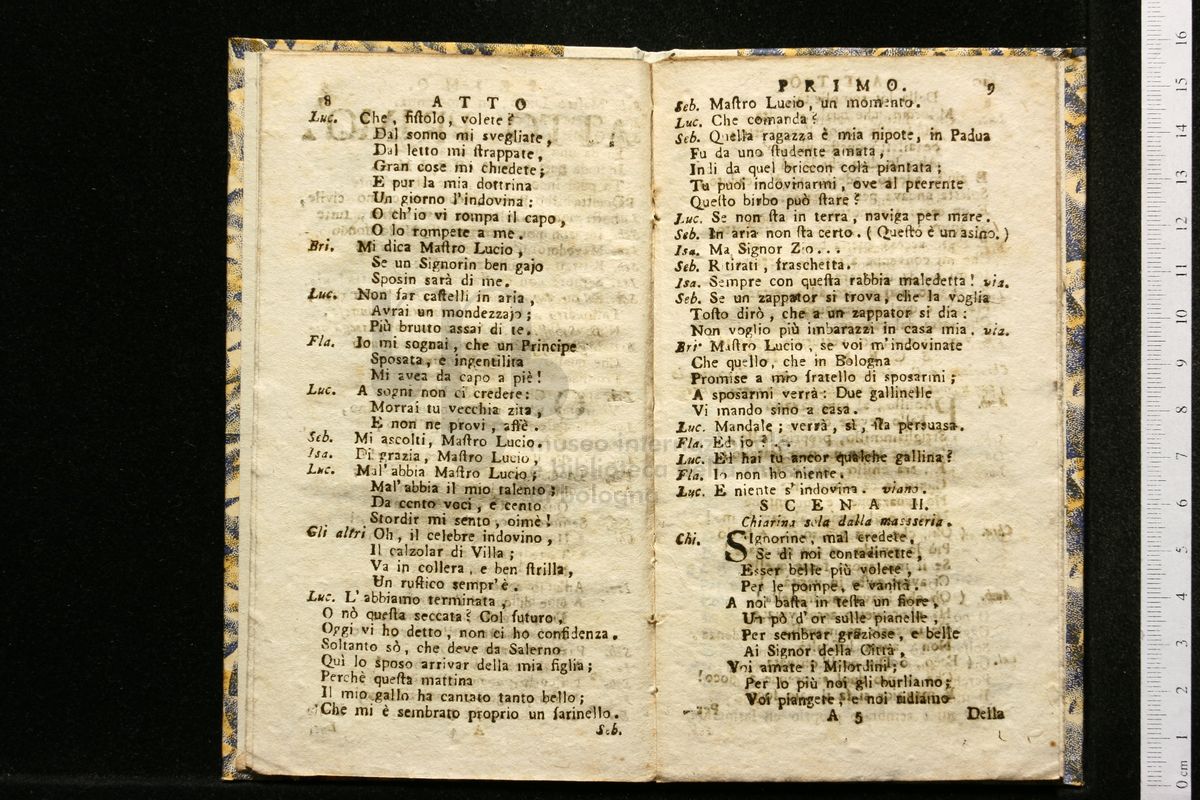 8 ATTO
Luc. Che, fistolo, volete?
Dal sonno mi svegliate,
Dal letto mi strappate,
Gran cose mi chiedete;
E pur la mia dottrina
Un giorno l'indovina:
O ch'io vi rompa il capo,
O lo rompete a me.
Bri. Mi dica Mastro Lucio,
Se un Signorin ben gajo
Sposin sarà di me.
Luc. Non far castelli in aria,
Avrai un mondezzajo;
Più brutto assai di te.
Fla. Io mi sognai, che un Principe
Sposata, e ingentilita
Mi avea da capo a piè!
Luc. A sogni non ci credere:
Morrai tu vecchia zita,
E non ne provi, affè.
Seb. Mi ascolti, Mastro Lucio.
Isa. Di grazia, Mastro Lucio,
Luc. Mal'abbia Mastro Lucio;
Mal'abbia il mio talento;
Da cento voci, e cento
Stordir mi sento, oimè!
Gli altri Oh, il celebre indovino,
Il calzolar di Villa;
Va in collera, e ben strilla,
Un rustico sempr'è.
Luc. L'abbiamo terminata,
O nò questa seccata? Col futuro,
Oggi vi ho detto, non ci ho confidenza.
Soltanto sò, che deve da Salerno
Quì lo sposo arrivar della mia figlia;
Perchè questa mattina
Il mio gallo ha cantato tanto bello;
Che mi è sembrato proprio un farinello.
Seb.
PRIMO. 9
Seb. Mastro Lucio, un momento.
Luc. Che comanda?
Seb. Quella ragazza è mia nipote, in Padua
Fu da uno studente amata,
Indi da quel briccon colà piantata;
Tu puoi indovinarmi, ove al prerente
Questo birbo può stare?
Luc. Se non sta in terra, naviga per mare.
Seb. In aria non sta certo. (Questo è un asino.)
Isa. Ma Signor Zio...
Seb. Ritirati, fraschetta.
Isa. Sempre con questa rabbia maledetta! via.
Seb. Se un zappator si trova, che la voglia
Tosto dirò, che a un zappator si dia:
Non voglio più imbarazzi in casa mia. via.
Bri. Mastro Lucio, se voi m'indovinate
Che quello, che in Bologna
Promise a mio fratello di sposarmi;
A sposarmi verrà: Due gallinelle
Vi mando sino a casa.
Luc. Mandale; verrà, sì, sta persuasa.
Fla. Ed io?...
Luc. Ed hai tu ancor qualche gallina?
Fla. Io non ho niente.
Luc. E niente s'indovina. viano.
SCENA II.
Chiarina sola dalla massseria.
Chi. SIgnorine, mal credete,
Se di noi contadinette,
Esser belle più volete,
Per le pompe, e vanità.
A noi basta in testa un fiore,
Un pò d'or sulle pianelle,
Per sembrar graziose, e belle
Ai Signor della Città,
Voi amate i Milordini;
Per lo più noi gli burliamo;
Voi piangete, e noi ridiamo
A 5 Della
museo internazionale
e biblioteca
bologna
0 cm 1 2 3 4 5 6 7 8 9 10 11 12 13 14 15 16